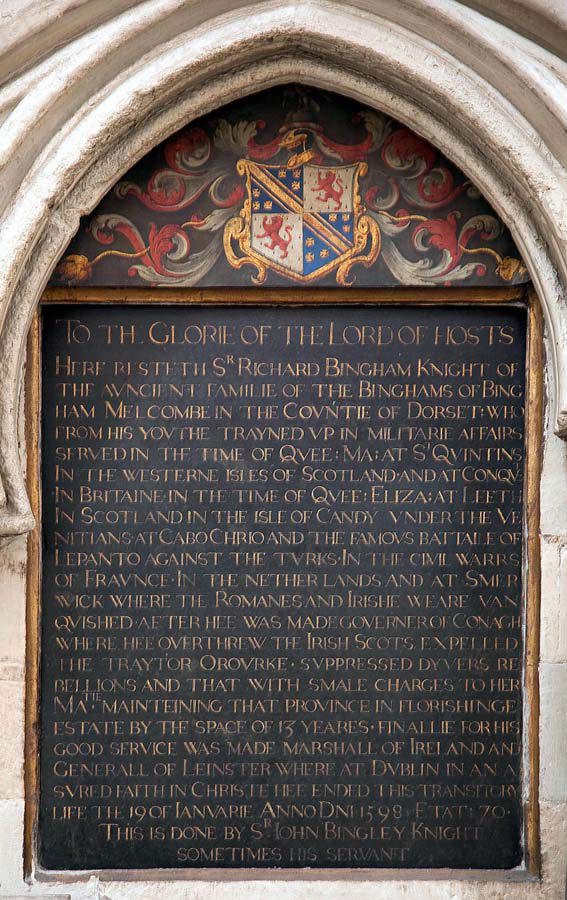 TO THE GLORIE OF THE LORD OF HOSTS
HERE RESTETH SR RICHARD BINGHAM KNIGHT OF
THE AVNCIENT FAMILIE OF THE BINGHAMS OF BING
HAM MELCOMBE IN THE COVNTIE OF DORSET: WHO
FROM HIS YOVTHE TRAYNED VP IN MILITARIE AFFAIRS
SERVED IN THE TIME OF QVEE: MA: AT ST QVINTINS
IN THE WESTERNE ISLES OF SCOTLAND AND AT CONQVT
IN BRITAINE IN THE TIME OF QVEE: ELIZA: AT LEETH
IN SCOTLAND IN THE ISLE OF CANDY VNDER THE VE
NITIANS AT CABO CHRIO AND THE FAMOVS BATTALE OF
LEPANTO AGAINST THE TVRKS · IN THE CIVIL WARRS
OF FRAVNCE · IN THE NETHER LANDS AND AT SMER
WICK WHERE THE ROMANES AND IRISHE WEARE VAN
QVISHED · AFTER HEE WAS MADE GOVERNER OF CONAGH
WHERE HEE OVERTHREW THE IRISH SCOTS, EXPELLED
THE TRAYTOR OROVRKE · SVPPRESSED DYVERS RE
BELLIONS AND THAT WITH SMALE CHARGES TO HER
MATIE MAINTEINING THAT PROVINCE IN FLORISHINGE
ESTATE BY THE SPACE OF 13 YEARES · FINALLIE FOR HIS
GOOD SERVICE WAS MADE MARSHALL OF IRELAND AND
GENERALL OF LEINSTER WHERE AT DVBLIN IN AN A
SVRED FAITH IN CHRISTE HEE ENDED THIS TRANSITORY
LIFE THE 19 OF IANVARIE ANNO DNI 1598 · ETAT: 70 ·
THIS IS DONE BY SR IOHN BINGLEY KNIGHT
SOMETIMES HIS SERVANT